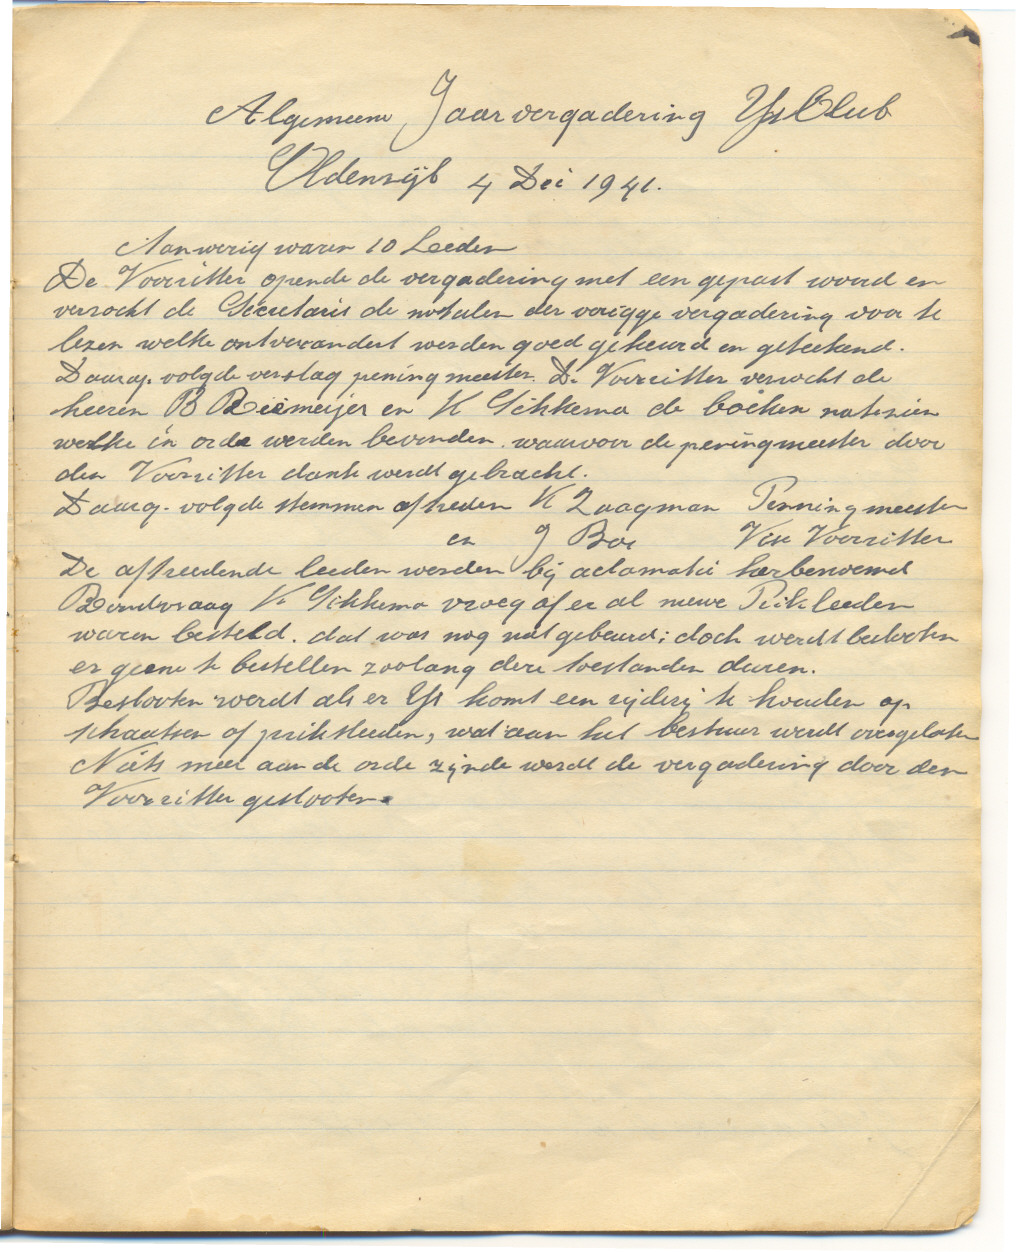 Algemeene Jaarvergadering Ys Club
Oldenzijl 4 Dec 1941.
Aanwezig waren 10 Leeden
De Voorzitter opende de vergadering met een gepast woord en
verzocht de Secretaris de notulen der vorigge vergadering voor te
lezen welke ontverandert werden goed gekeurd en geteekend.
Daarop volgde verslag peningmeester. De Voorzitter verzocht de
heeren B Riemeijer en K Sikkema de boeken natezien
welke in orde werden bevonden waarvoor de peningmeester door
den Voorzitter dank werdt gebracht.
Daarop volgde stemmen aftreden K Zaagman Penningmeester
en J Bos Vice Voorzitter
De aftreedende leeden werden bij aclamatie herbenoemd
Rondvraag K Sikkema vroeg of er al nieuwe Prikleeden
waren besteld. dat was nog niet gebeurd; doch werdt beslooten
er geene te bestellen zoolang deze toestanden duren.
Beslooten werdt als er Ys komt een rijderij te houden op
schaatsen of priksleeden, wat aan het bestuur werdt overgelaten
Niets meer aan de orde zijnde werdt de vergadering door den
Voorzitter geslooten.